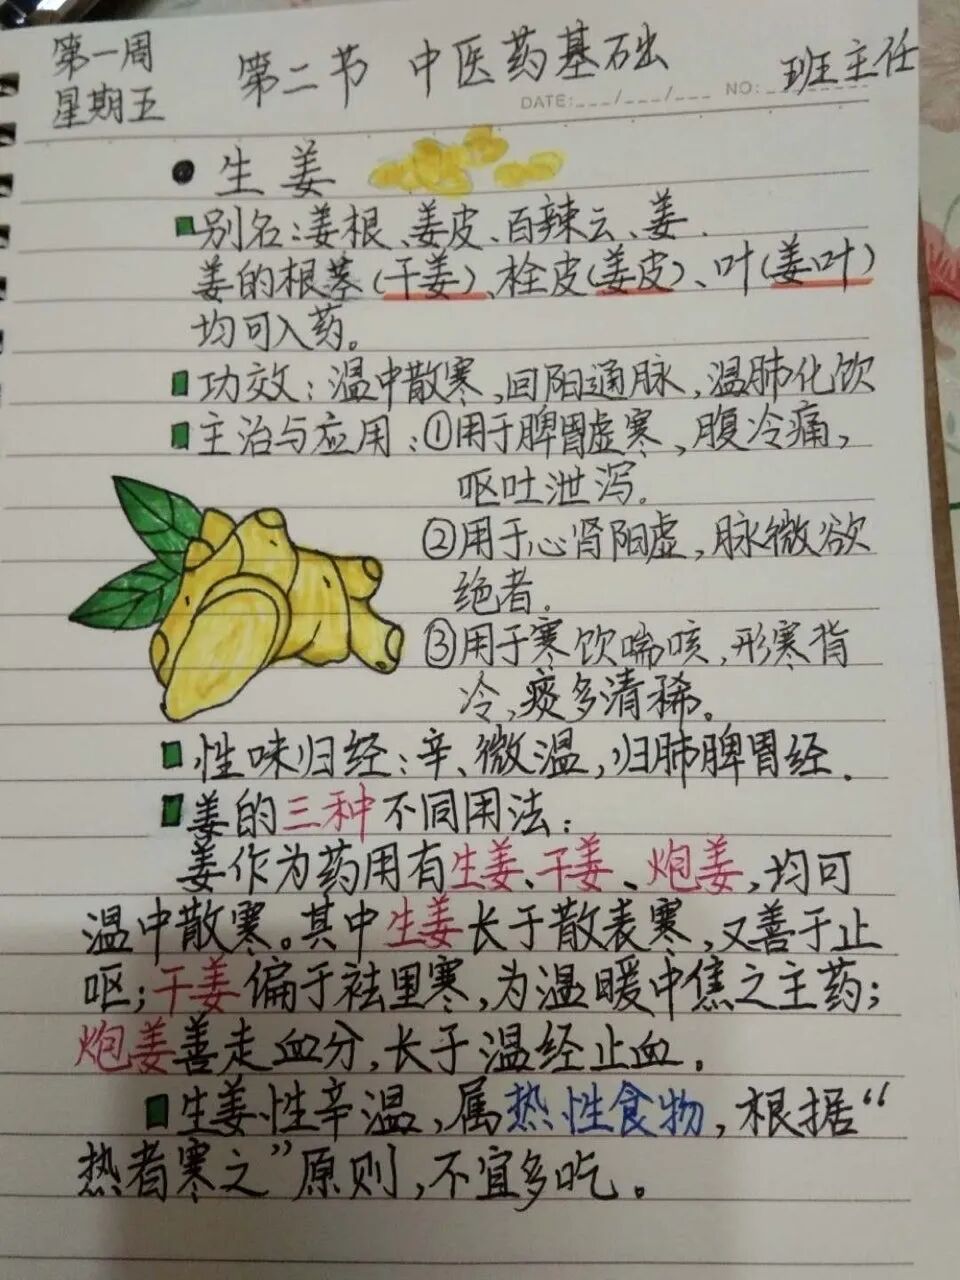 第一周
星期五
第二节 中医药基础
班主任
DATE:___/___/___ NO:
生姜
别名:姜根、姜皮、百辣云、姜.
姜的根茎(干姜)、栓皮(姜皮)、叶(姜叶)
均可入药。
功效:温中散寒,回阳通脉,温肺化饮
主治与应用:①用于脾胃虚寒,腹冷痛,
呕吐泄泻.
②用于心肾阳虚,脉微欲
绝者.
③用于寒饮喘咳,形寒背
冷,痰多清稀。
性味归经:辛、微温,归肺脾胃经.
姜的三种不同用法:
姜作为药用有生姜、干姜、炮姜,均可
温中散寒。其中生姜长于散表寒,又善于止
呕;干姜偏于祛里寒,为温暖中焦之主药;
炮姜善走血分,长于温经止血.
生姜性辛温,属热性食物,根据“
热者寒之”原则,不宜多吃。